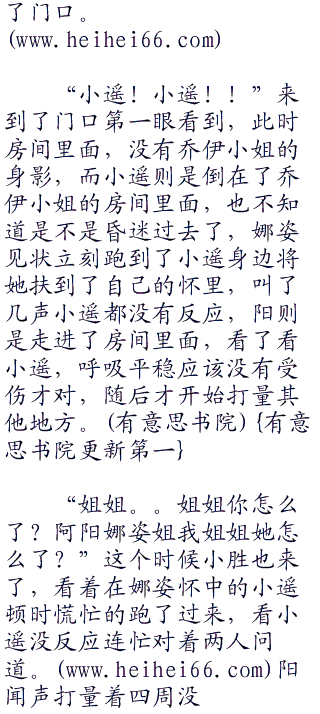 了门口。
(www.heihei66.com)
“小遥！小遥！！”来
到了门口第一眼看到，此时
房间里面，没有乔伊小姐的
身影，而小遥则是倒在了乔
伊小姐的房间里面，也不知
道是不是昏迷过去了，娜姿
见状立刻跑到了小遥身边将
她扶到了自己的怀里，叫了
几声小遥都没有反应，阳则
是走进了房间里面，看了看
小遥，呼吸平稳应该没有受
伤才对，随后才开始打量其
他地方。(有意思书院){有意
思书院更新第一}
“姐姐。。姐姐你怎么
了？阿阳娜姿姐我姐姐她怎
么了？”这个时候小胜也来
了，看着在娜姿怀中的小遥
顿时慌忙的跑了过来，看小
遥没反应连忙对着两人问
道。(www.heihei66.com)阳
闻声打量着四周没